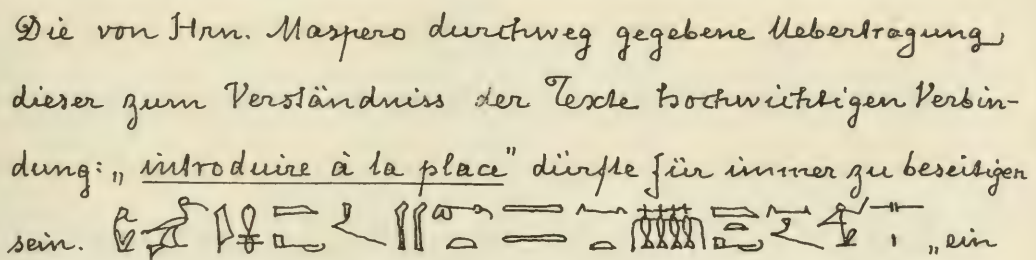 Die von Hrn. Maspero durchweg gegebene Uebertragung,
dieser zum Verständniss der Texte hochwichtigen Verbin-
dung: „introduire à la place" dürfte für immer zu beseitigen
sein. „ein